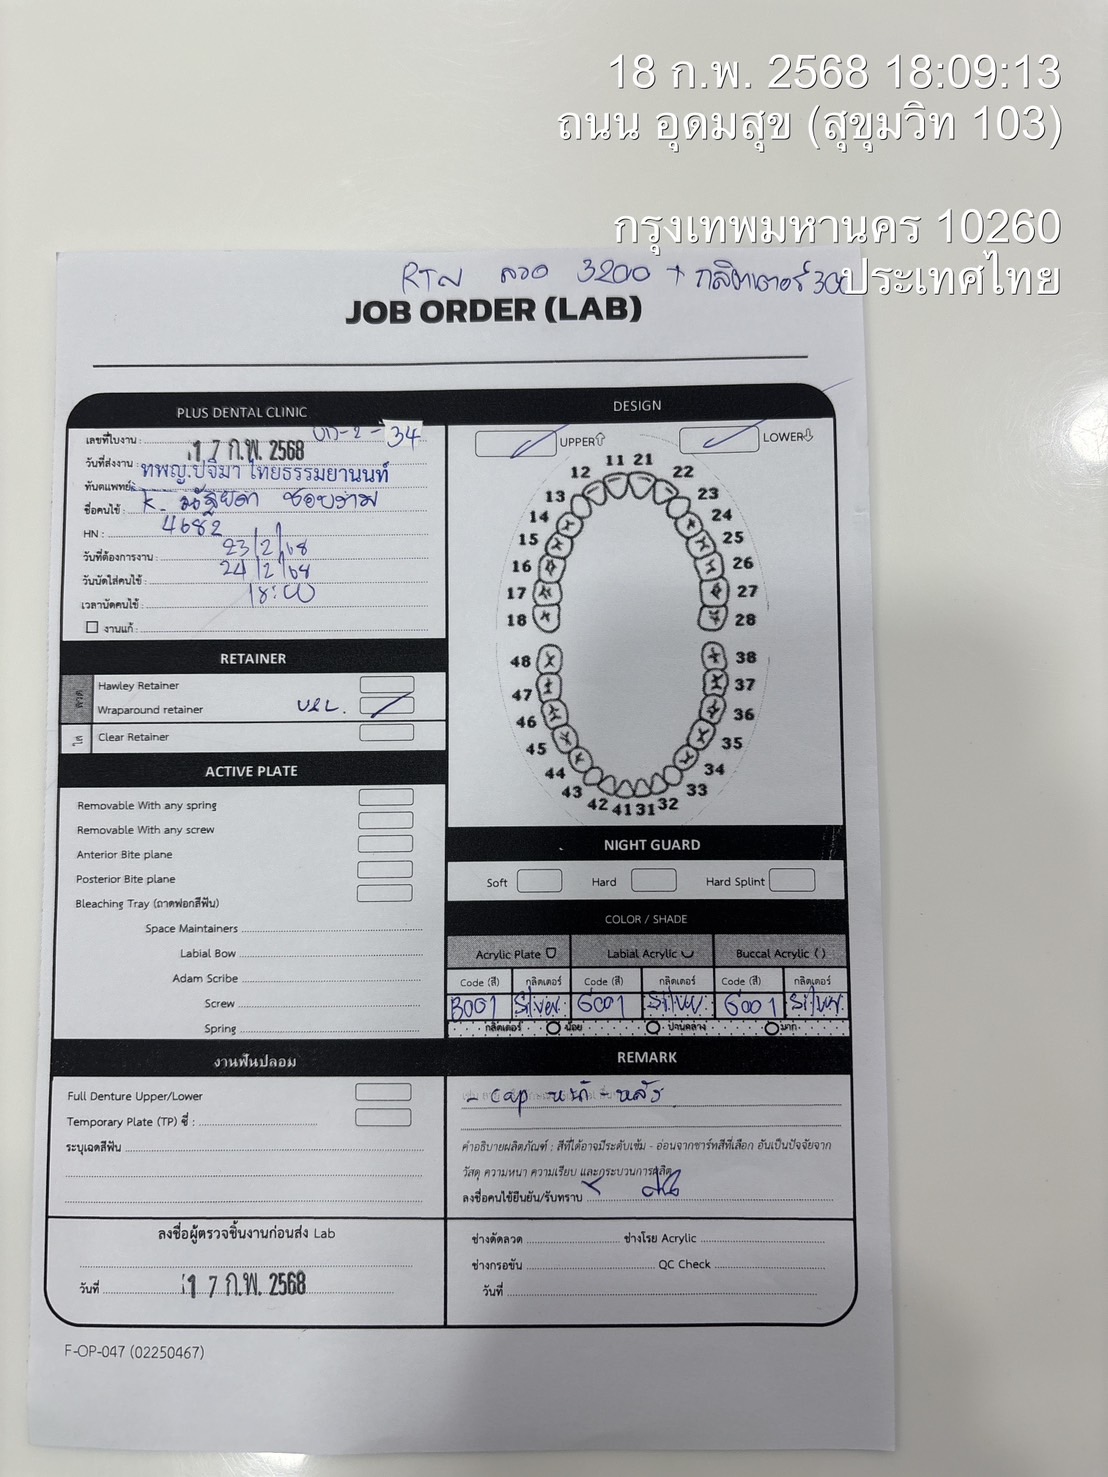 18 ก.พ. 2568 18:09:13
ถนน อุดมสุข (สุขุมวิท 103)
กรุงเทพมหานคร 10260
ประเทศไทย
RTN ลวด 3200 + กลิตเตอร์ 300
JOB ORDER (LAB)
PLUS DENTAL CLINIC
เลขที่ใบงาน : UD-2-34
วันที่ส่งงาน : 17 ก.พ. 2568
ทันตแพทย์ : ทพญ.ปจิมา ไทยธรรมยานนท์
ชื่อคนไข้ : K.
HN : 4682
วันที่ต้องการงาน : 23/2/68
วันนัดใส่คนไข้ : 24/2/68
เวลานัดคนไข้ : 18:00
งานแก้ :
RETAINER
ลวด
Hawley Retainer
Wraparound retainer U&L.
ใส
Clear Retainer
ACTIVE PLATE
Removable With any spring
Removable With any screw
Anterior Bite plane
Posterior Bite plane
Bleaching Tray (ถาดฟอกสีฟัน)
Space Maintainers
Labial Bow
Adam Scribe
Screw
Spring
งานฟันปลอม
Full Denture Upper/Lower
Temporary Plate (TP) ซี่ :
ระบุเฉดสีฟัน
ลงชื่อผู้ตรวจชิ้นงานก่อนส่ง Lab
วันที่ 17 ก.พ. 2568
DESIGN
UPPER LOWER
11 21
12 22
13 23
14 24
15 25
16 26
17 27
18 28
48 38
47 37
46 36
45 35
44 34
43 33
42 41 31 32
NIGHT GUARD
Soft Hard Hard Splint
COLOR / SHADE
Acrylic Plate Labial Acrylic Buccal Acrylic ( )
Code (สี) กลิตเตอร์ Code (สี) กลิตเตอร์ Code (สี) กลิตเตอร์
Silver. G001 Silver. G001 Silver.
กลิตเตอร์ น้อย ปานกลาง มาก
REMARK
- cap หน้า - หลัง
คำอธิบายผลิตภัณฑ์ : สีที่ได้อาจมีระดับเข้ม - อ่อนจากชาร์ทสีที่เลือก อันเป็นปัจจัยจาก
วัสดุ ความหนา ความเรียบ และกระบวนการผลิต
ลงชื่อคนไข้ยืนยัน/รับทราบ
ช่างดัดลวด ช่างโรย Acrylic
ช่างกรอขัน QC Check
วันที่
F-OP-047 (02250467)